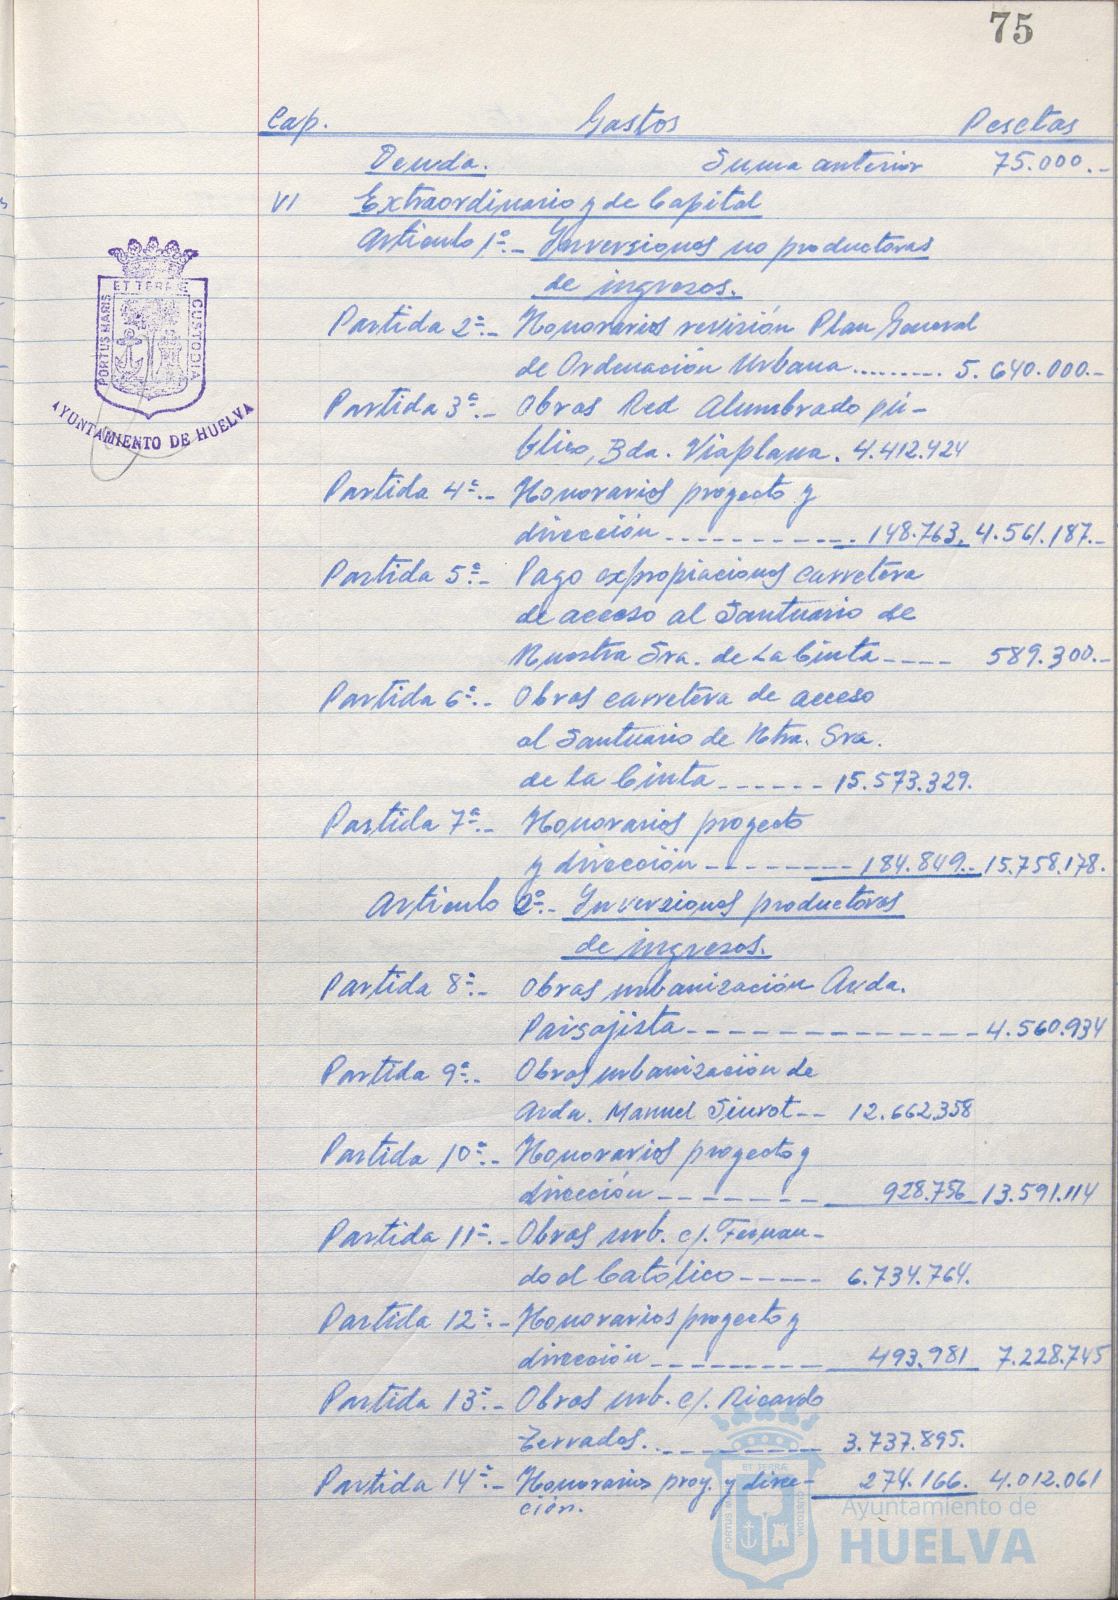 75
Cap. Gastos Pesetas
Deuda. Suma anterior 75.000.-
VI Extraordinario y de Capital
Artículo 1º.- Inversiones no productoras
de ingresos.
Partida 2ª.- Honorarios revisión Plan General
de Ordenación Urbana........ 5.640.000.-
Partida 3ª.- Obras Red Alumbrado pú-
blico, Bda. Viaplana. 4.412.424
Partida 4ª.- Honorarios proyecto y
dirección ------------. 148.763. 4.561.187.-
Partida 5ª.- Pago expropiaciones carretera
de acceso al Santuario de
Nuestra Sra. de La Cinta---- 589.300.-
Partida 6ª.- Obras carretera de acceso
al Santuario de Ntra. Sra.
de la Cinta ------ 15.573.329.
Partida 7ª.- Honorarios proyecto
y dirección --------- 184.849.. 15.758.178.
Artículo 2º.- Inversiones productoras
de ingresos.
Partida 8ª.- Obras urbanización Avda.
Paisajista --------------- 4.560.934
Partida 9ª.- Obras urbanización de
Avda. Manuel Siurot-- 12.662.358
Partida 10ª.- Honorarios proyecto y
dirección --------- 928.756 13.591.114
Partida 11ª.- Obras urb. c/. Fernan-
do el Católico ----- 6.734.764.
Partida 12ª.- Honorarios proyecto y
dirección --------- 493.981 7.228.745
Partida 13ª.- Obras urb. c/. Ricardo
Terrados. --------- 3.737.895.
Partida 14ª.- Honorarios proy. y direc- 274.166. 4.012.061
ción.
PORTUS MARIS ET TERRÆ CUSTODIA
AYUNTAMIENTO DE HUELVA
PORTUS MARIS ET TERRÆ CUSTODIA
Ayuntamiento de
HUELVA